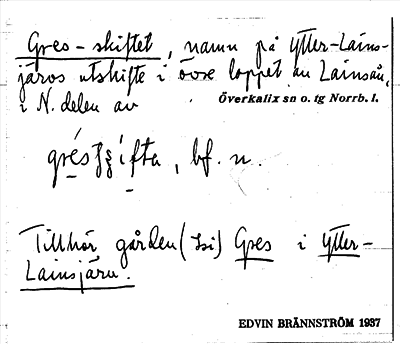 Gres-skiftet, namn på Ytter-Lains-
järvs utskifte i övre loppet av Lainsån,
i N. delen av Överkalix sn o. tg Norrb. l.
bf. n.
Tillhör gården (Isi) Gres i Ytter-
Lainsjärv.
EDVIN BRÄNNSTRÖM 1937